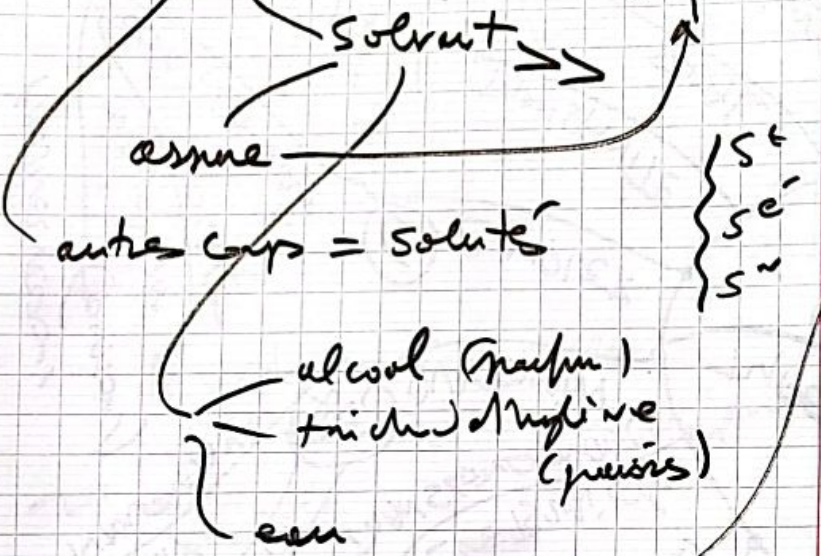 solvant >>
assure
autres corps = soluté
s^t
s^é
s^n
alcool (parfum)
trichloréthylène
eau